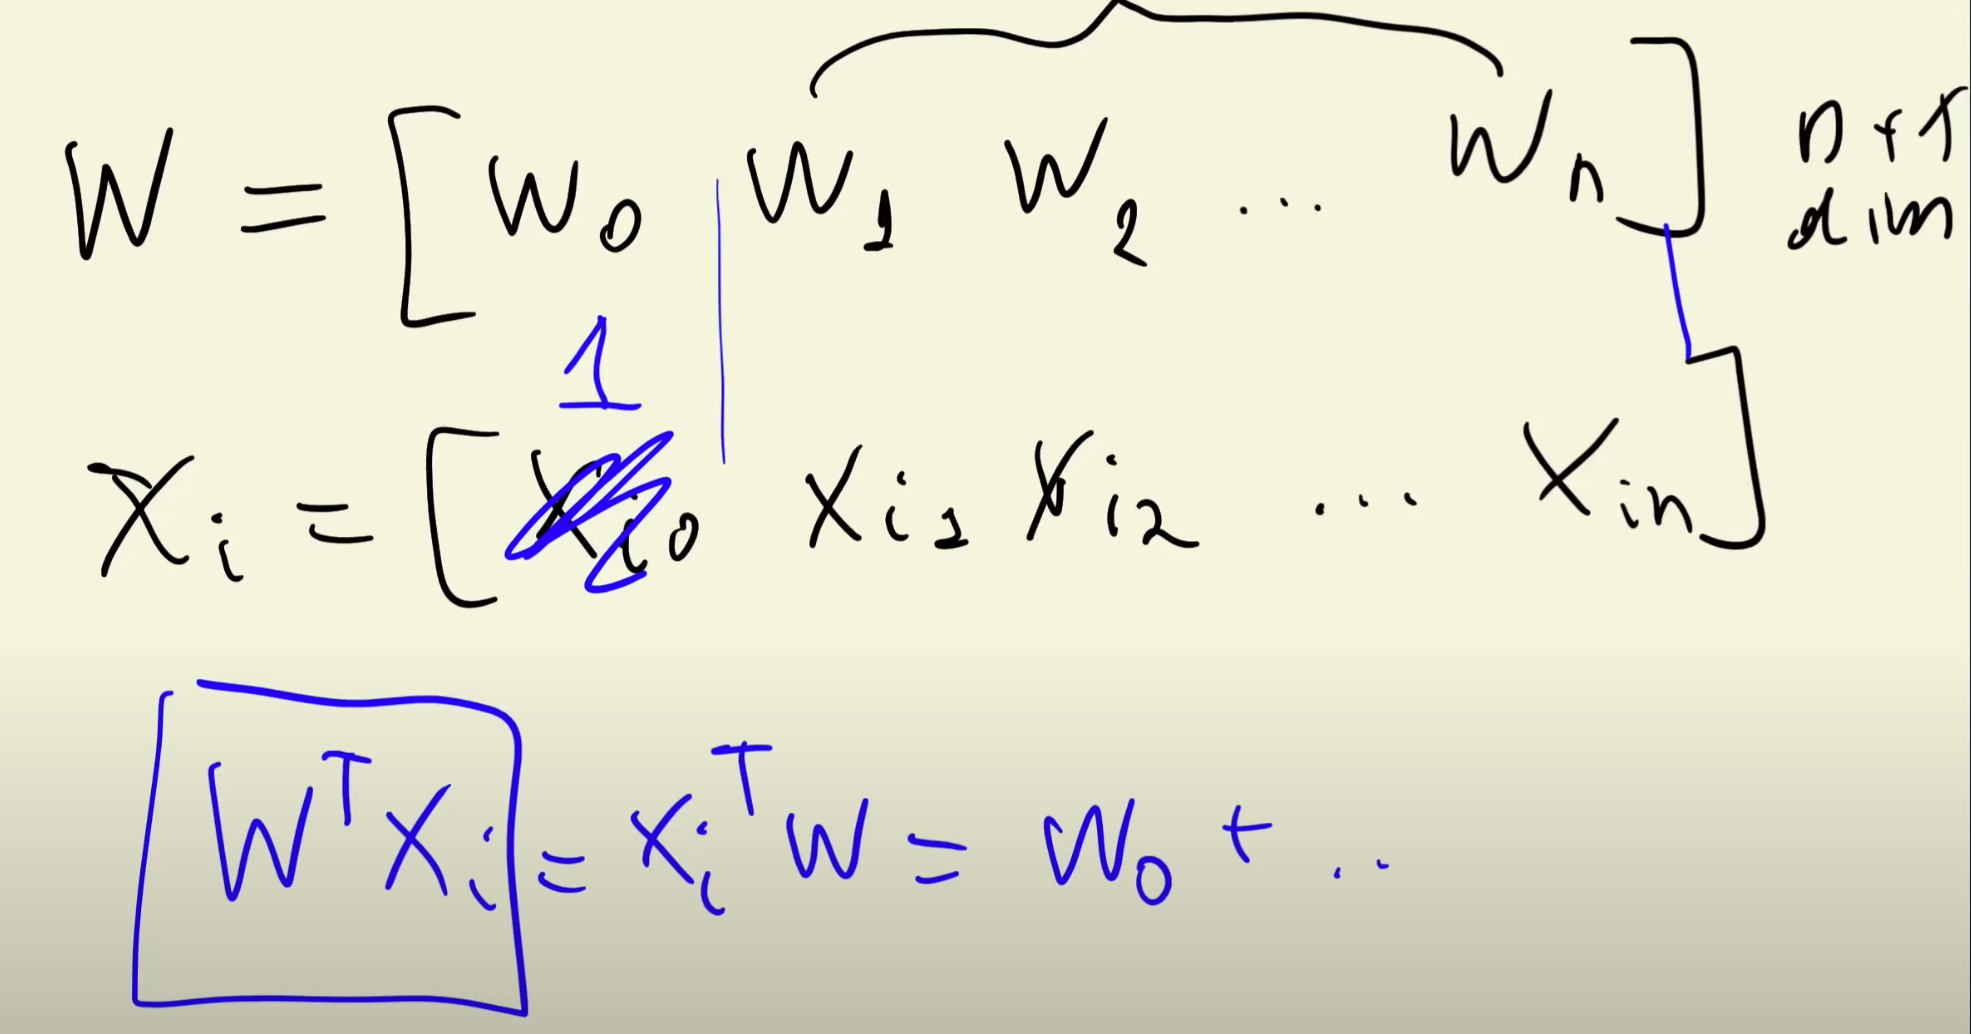 W = [ W₀ | W₁ W₂ ... Wₙ ] n+1
dim
1
Xᵢ = [ Xᵢ₀ Xᵢ₁ Xᵢ₂ ... Xᵢₙ ]
WᵀXᵢ = XᵢᵀW = W₀ + ...